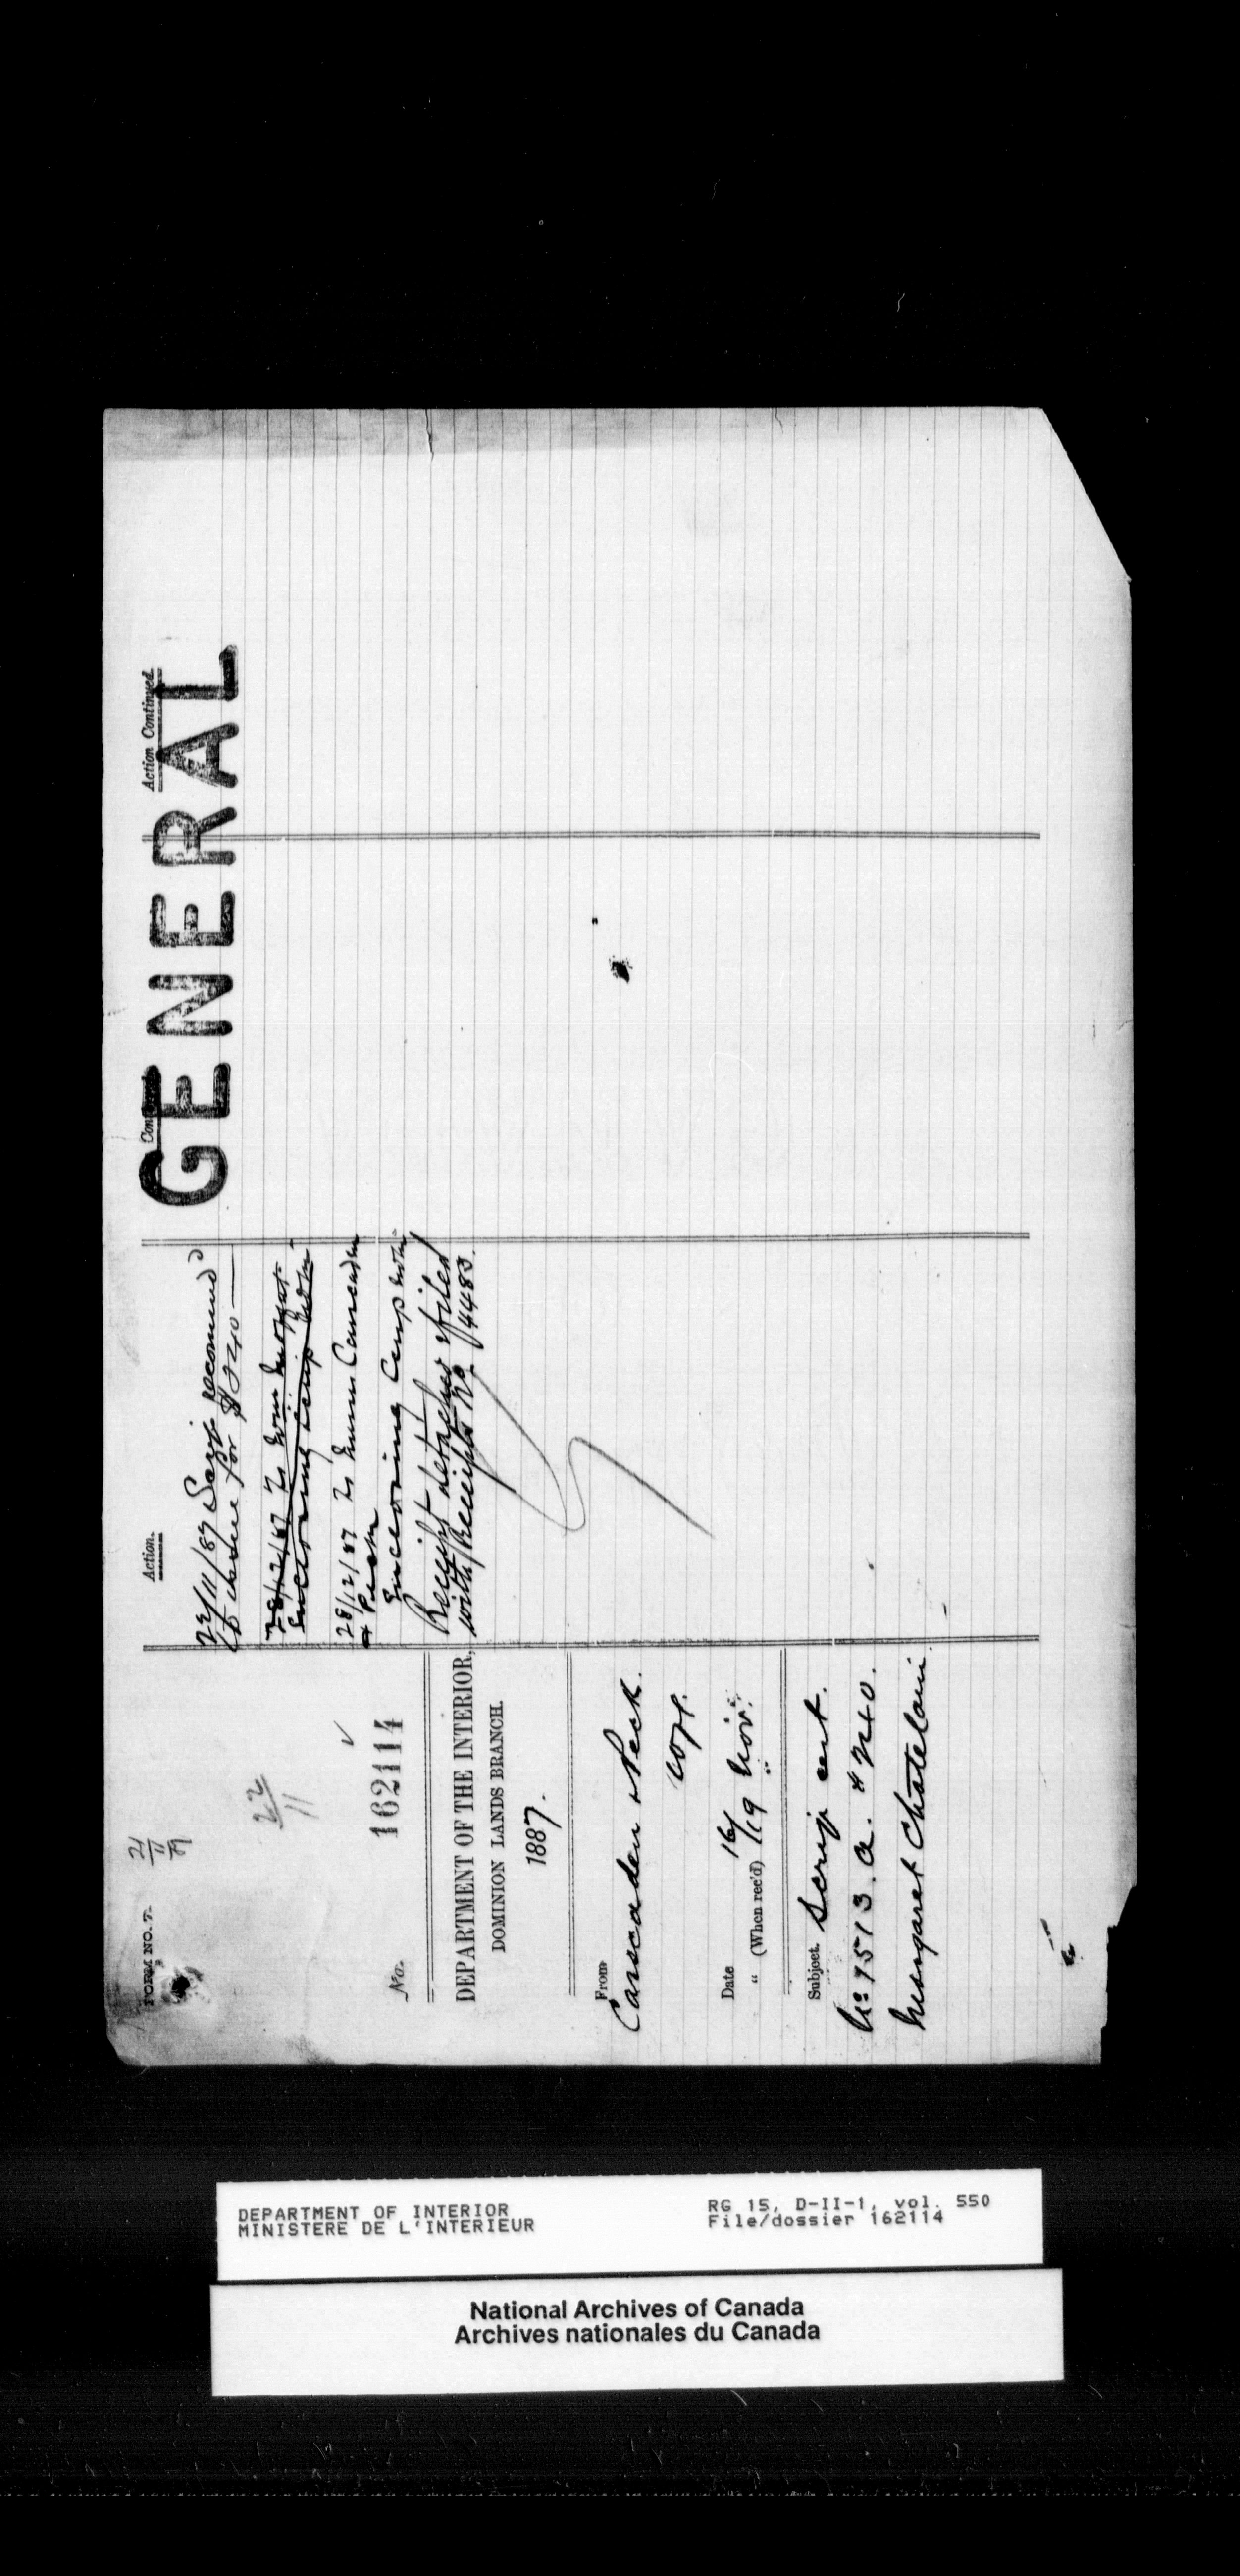 FORM NO. 7.
21
11
87
22
11
No. 162114
DEPARTMENT OF THE INTERIOR,
DOMINION LANDS BRANCH.
1887.
From
Cascaden & Peck.
Date 16
" (When rec'd) 19 Nov.
Subject. Scrip cert.
No 1513. A. $240.
Margaret Chatelain.
Action.
22/11/87 Scrip recommend
for $240 —
28/12/87 To
enclosing scrip
28/12/87 To Messrs Cascaden
& Peck
Enclosing Scrip
Receipt detached & filed
with Receipts No 4483.
GENERAL
Action Continued.
DEPARTMENT OF INTERIOR
MINISTERE DE L'INTERIEUR
RG 15, D-II-1, vol. 550
File/dossier 162114
National Archives of Canada
Archives nationales du Canada